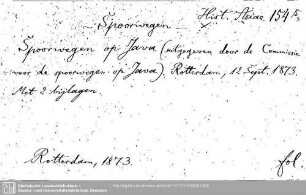 Spoorwegen
Hist. Asiae 154
Spoorwegen op Java (uitgegeven door de Commissie
voor de spoorwegen op Java). Rotterdam, 12 Sept. 1873.
Met 2 bijlagen
Rotterdam, 1873.
fol.
Sächsische Landesbibliothek -
Staats- und Universitätsbibliothek Dresden